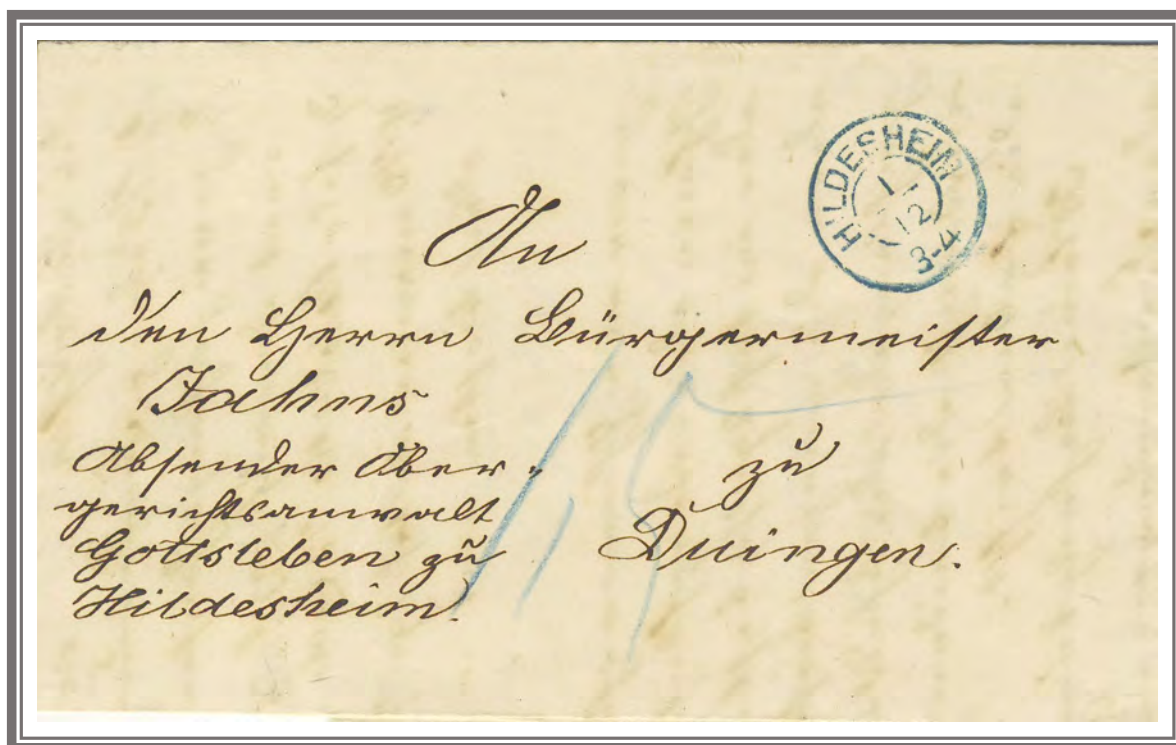 HILDESHEIM
1
12
3-4
An
den Herrn Bürgermeister
Jahns
Absender Ober-
gerichtsanwalt
Gottsleben zu
Hildesheim.
zu
Duingen.